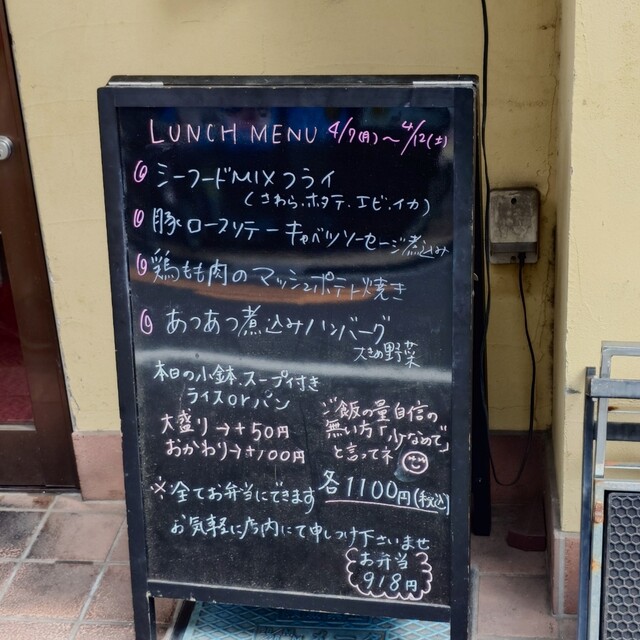 LUNCH MENU 4/7(月)〜4/12(土)
シーフードMIXフライ
(さわら、ホタテ、エビ、イカ)
豚ロースソテー キャベツソーセージ煮込み
鶏もも肉のマッシュポテト焼き
あつあつ煮込みハンバーグ
大きめ野菜
本日の小鉢、スープ付き
ライスorパン
大盛り→+50円
おかわり→+100円
ご飯の量自信の
無い方「少なめで」
と言ってネ
各1100円(税込)
※全てお弁当にできます
お気軽に店内にて申しつけ下さいませ
お弁当
918円